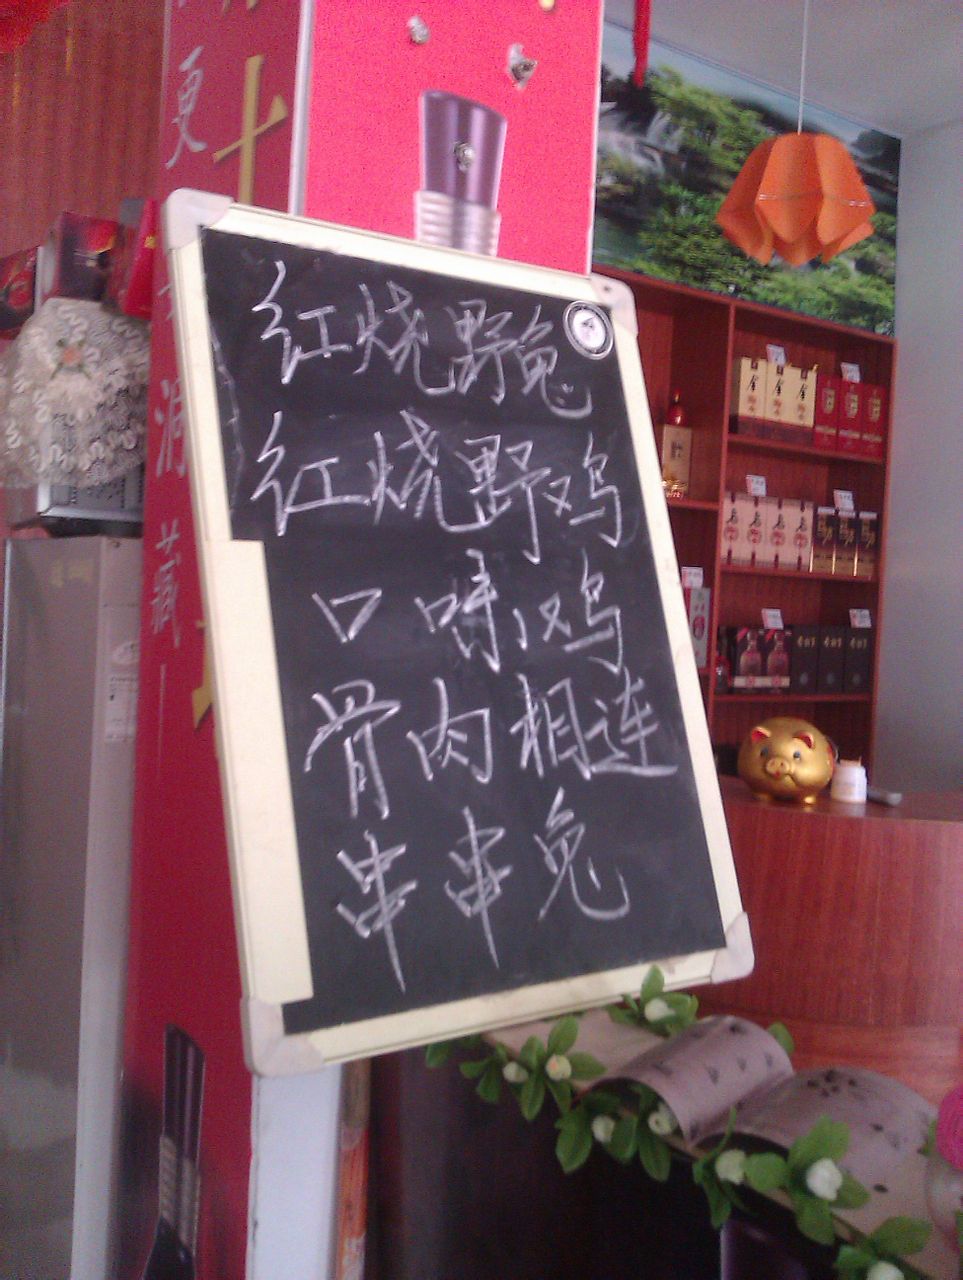 红烧野龟
红烧野鸡
口味鸡
骨肉相连
串串兔
更
十
藏